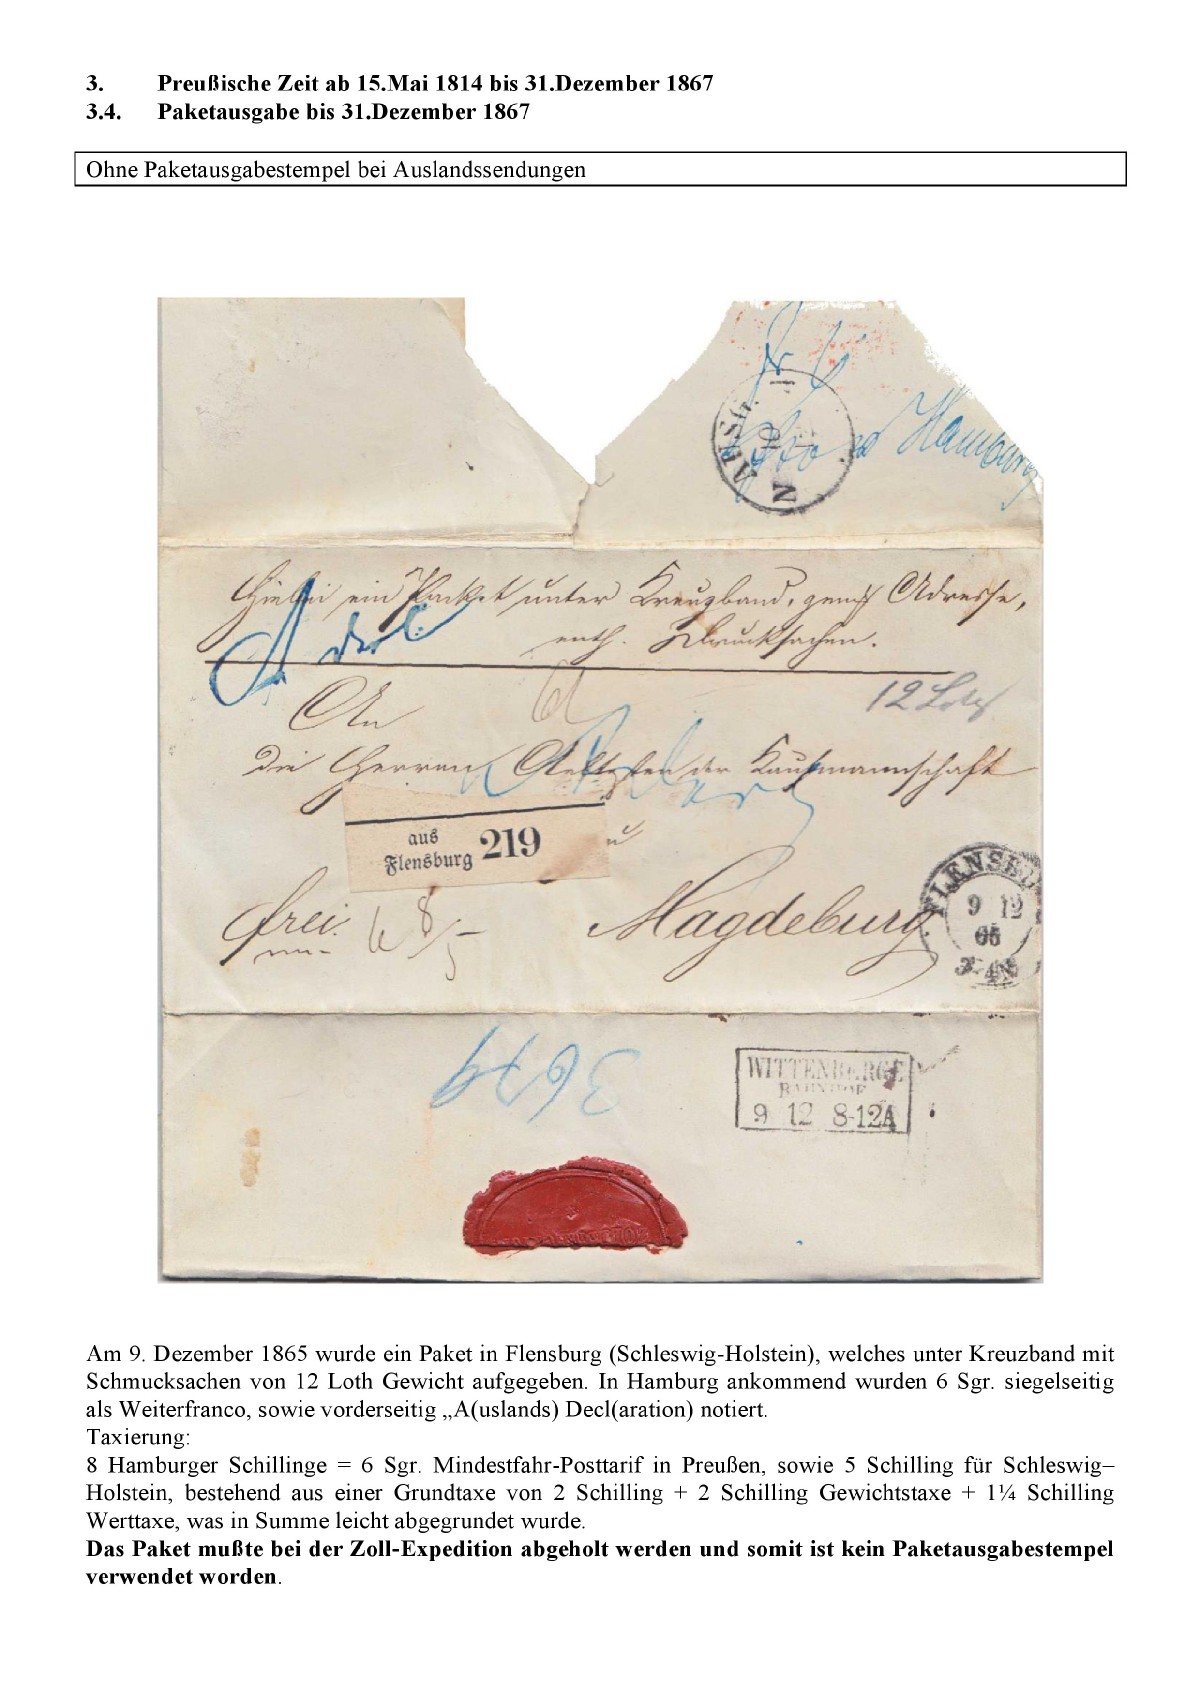 3. Preußische Zeit ab 15.Mai 1814 bis 31.Dezember 1867
3.4. Paketausgabe bis 31.Dezember 1867
Ohne Paketausgabestempel bei Auslandssendungen
Hamburg
Hiebei ein Packet unter Kreuzband, gemß Adresse,
enth. Drucksachen.
A decl.
12 Loth
An
die Herren Aeltesten der Kaufmannschaft
aus
Flensburg 219
Magdeburg.
frei.
8/5
FLENSB
9 12
65
3674
WITTENBERGE
BAHNHOF
9 12 8-12A
Am 9. Dezember 1865 wurde ein Paket in Flensburg (Schleswig-Holstein), welches unter Kreuzband mit
Schmucksachen von 12 Loth Gewicht aufgegeben. In Hamburg ankommend wurden 6 Sgr. siegelseitig
als Weiterfranco, sowie vorderseitig „A(uslands) Decl(aration) notiert.
Taxierung:
8 Hamburger Schillinge = 6 Sgr. Mindestfahr-Posttarif in Preußen, sowie 5 Schilling für Schleswig–
Holstein, bestehend aus einer Grundtaxe von 2 Schilling + 2 Schilling Gewichtstaxe + 1¼ Schilling
Werttaxe, was in Summe leicht abgegrundet wurde.
Das Paket mußte bei der Zoll-Expedition abgeholt werden und somit ist kein Paketausgabestempel
verwendet worden.